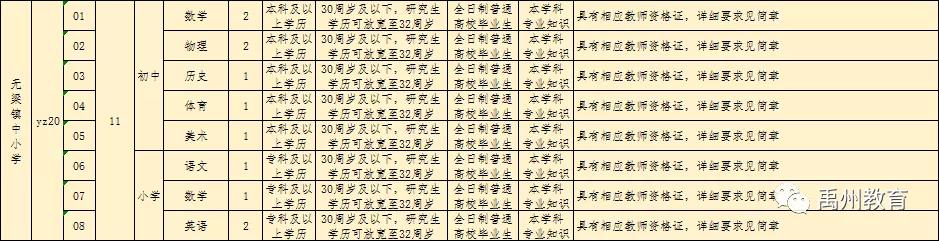 无梁镇中小学 yz20 11
初中
01 数学 2 本科及以上学历 30周岁及以下，研究生学历可放宽至32周岁 全日制普通高校毕业生 本学科专业知识 具有相应教师资格证，详细要求见简章
02 物理 2 本科及以上学历 30周岁及以下，研究生学历可放宽至32周岁 全日制普通高校毕业生 本学科专业知识 具有相应教师资格证，详细要求见简章
03 历史 1 本科及以上学历 30周岁及以下，研究生学历可放宽至32周岁 全日制普通高校毕业生 本学科专业知识 具有相应教师资格证，详细要求见简章
04 体育 1 本科及以上学历 30周岁及以下，研究生学历可放宽至32周岁 全日制普通高校毕业生 本学科专业知识 具有相应教师资格证，详细要求见简章
05 美术 1 本科及以上学历 30周岁及以下，研究生学历可放宽至32周岁 全日制普通高校毕业生 本学科专业知识 具有相应教师资格证，详细要求见简章
小学
06 语文 1 专科及以上学历 30周岁及以下，研究生学历可放宽至32周岁 全日制普通高校毕业生 本学科专业知识 具有相应教师资格证，详细要求见简章
07 数学 1 专科及以上学历 30周岁及以下，研究生学历可放宽至32周岁 全日制普通高校毕业生 本学科专业知识 具有相应教师资格证，详细要求见简章
08 英语 2 专科及以上学历 30周岁及以下，研究生学历可放宽至32周岁 全日制普通高校毕业生 本学科专业知识 具有相应教师资格证，详细要求见简章
禹州教育